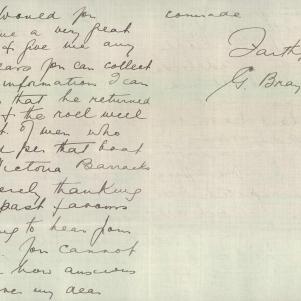 would you
me a very great
& give me any
you can collect
information I can
that he returned
& the roll
of men who
per that boat
Victoria Barracks
thanking
past favours
to hear from
you cannot
how anxious
my dear
comrade
Faith
G. Bray